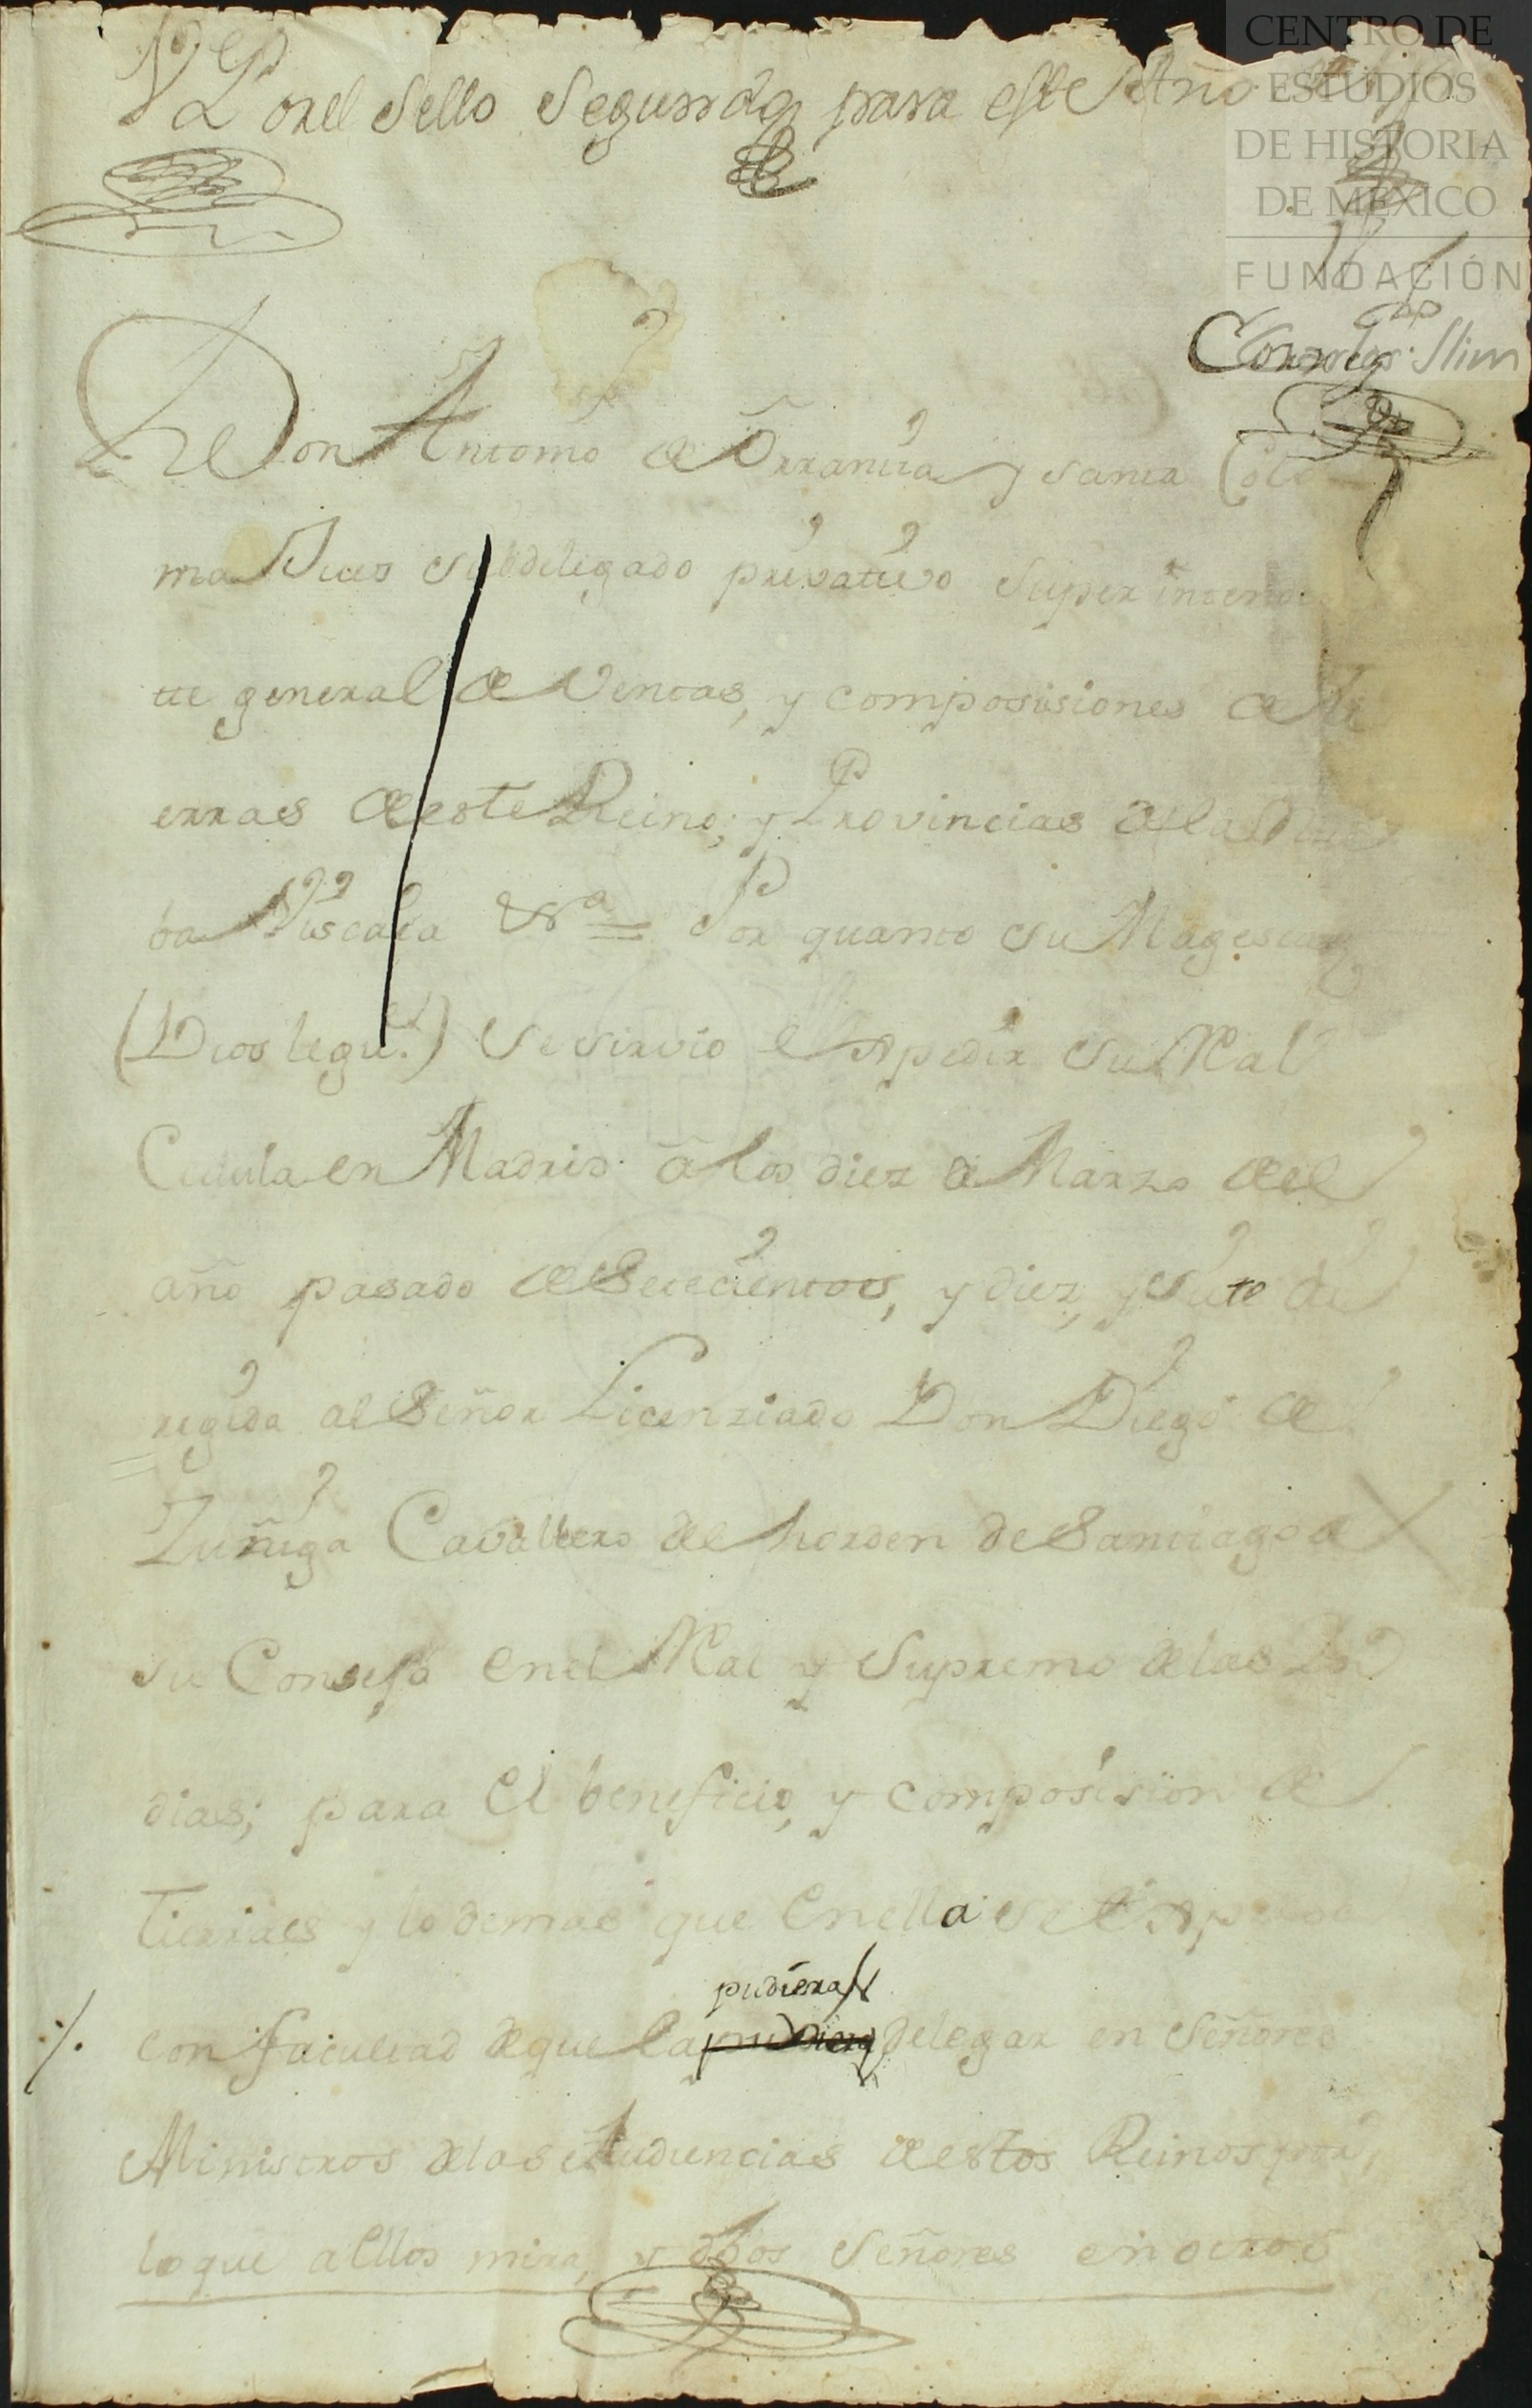 Por el Sello Segundo para este Año
CENTRO DE
ESTUDIOS
DE HISTORIA
DE MÉXICO
FUNDACIÓN
Carlos Slim
Don Antonio de Urrantia y santa Colo
ma Jues subdelegado privativo Superintend
te general de Ventas, y composisiones de ti
erras de este Reino, y Provincias de la Nue
ba Viscaia &ª = Por quanto su Magestad
(Dios le gue.) se sirvio expedir su Real
Cedula en Madrid a los diez de Marzo del
año pasado de Setecientos, y diez, y siete di
regida al Señor Licenziado Don Diego de
Zuñiga Cavallero del horden de Santiago de
su Consejo en el Real y Supremo de las Yn
dias; para el beneficio, y composision de
tierras y lo demas que en ella se expresa
pudiera
con facultad de que la pudiera delegar en Señores
Ministros de las Audiencias de estos Reinos por
lo que a ellos mira, y dhos Señores en otros